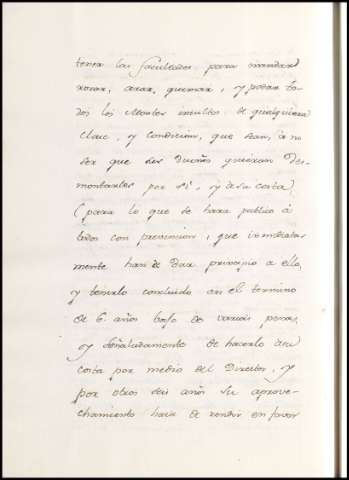 tener las facultades para mandar
rozar, arar, quemar, y podar to-
dos los Montes incultos de qualquiera
clase, y condicion, que sean, à no
ser que sus Dueños quieran Des-
montarles por sí, y à su costa,
(para lo que se hara publico à
todos con prevencion, que inmediata-
mente han de Dar principio a ello,
y tenerlo concluido en el termino
de 6. años bajo de varias penas,
y señaladamente de hacerlo a su
costa por medio del Director, y
por otros seis años su aprove-
chamiento hacia de rendir en favor